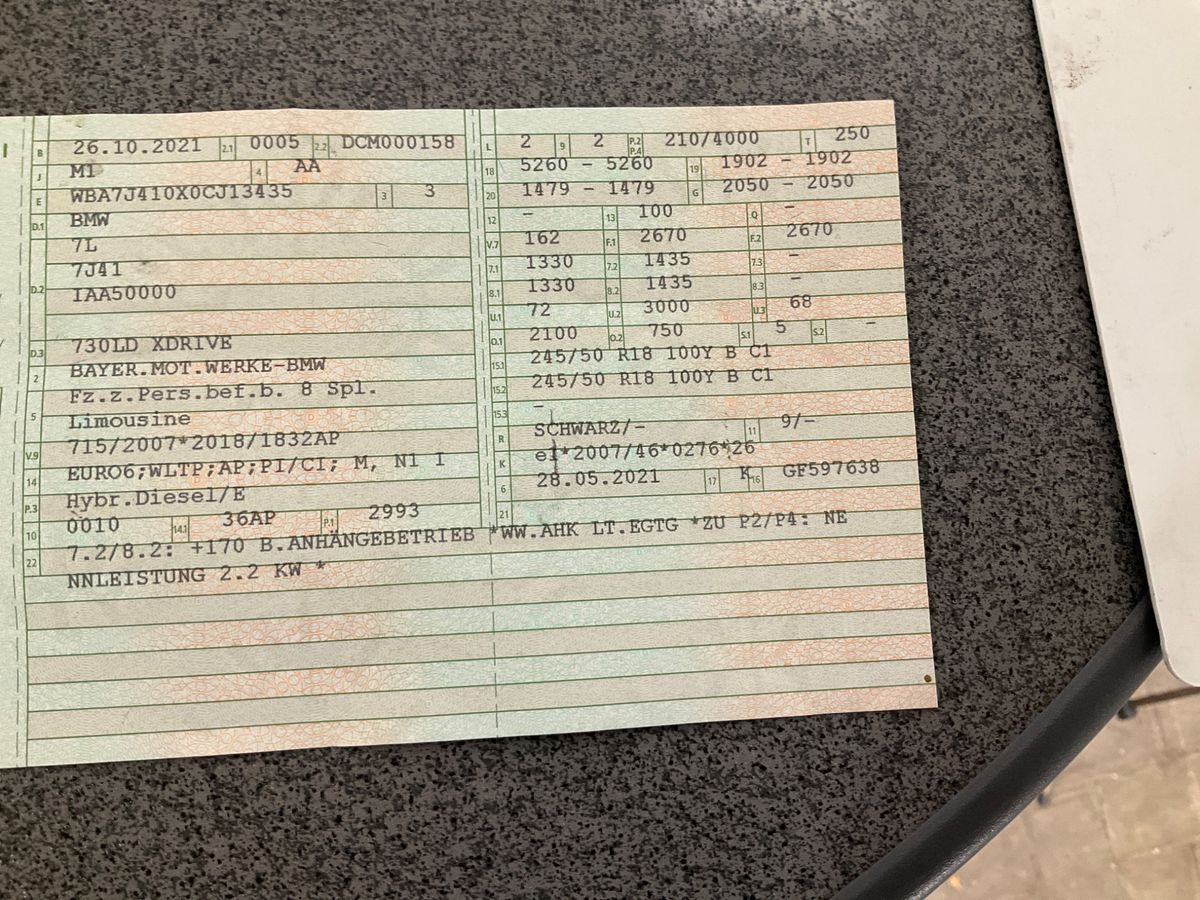 B 26.10.2021 2.1 0005 2.2 DCM000158
J M1 4 AA
E WBA7J410X0CJ13435 3 3
D.1 BMW
7L
D.2 7J41
IAA50000
D.3 730LD XDRIVE
2 BAYER.MOT.WERKE-BMW
5 Fz.z.Pers.bef.b. 8 Spl.
Limousine
V.9 715/2007*2018/1832AP
14 EURO6;WLTP;AP;PI/CI; M, N1 I
P.3 Hybr.Diesel/E
10 0010 14.1 36AP P.1 2993
L 2 9 2 P.2 P.4 210/4000 T 250
18 5260 - 5260 19 1902 - 1902
20 1479 - 1479 G 2050 - 2050
12 - 13 100 Q -
V.7 162 F.1 2670 F.2 2670
7.1 1330 7.2 1435 7.3 -
8.1 1330 8.2 1435 8.3 -
U.1 72 U.2 3000 U.3 68
O.1 2100 O.2 750 S.1 5 S.2 -
15.1 245/50 R18 100Y B C1
15.2 245/50 R18 100Y B C1
15.3 -
R SCHWARZ/- 11 9/-
K e1*2007/46*0276*26
6 28.05.2021 17 K 16 GF597638
21
22 7.2/8.2: +170 B.ANHÄNGEBETRIEB *WW.AHK LT.EGTG *ZU P2/P4: NE
NNLEISTUNG 2.2 KW *